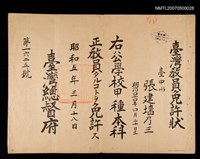 NMTL20070500028
臺灣教員免許狀
臺中州
張建墻乃三
右公學校甲種本科
正教員タルコトヲ免許ス
昭和五年三月十八日
臺灣總督府
第一六二五號